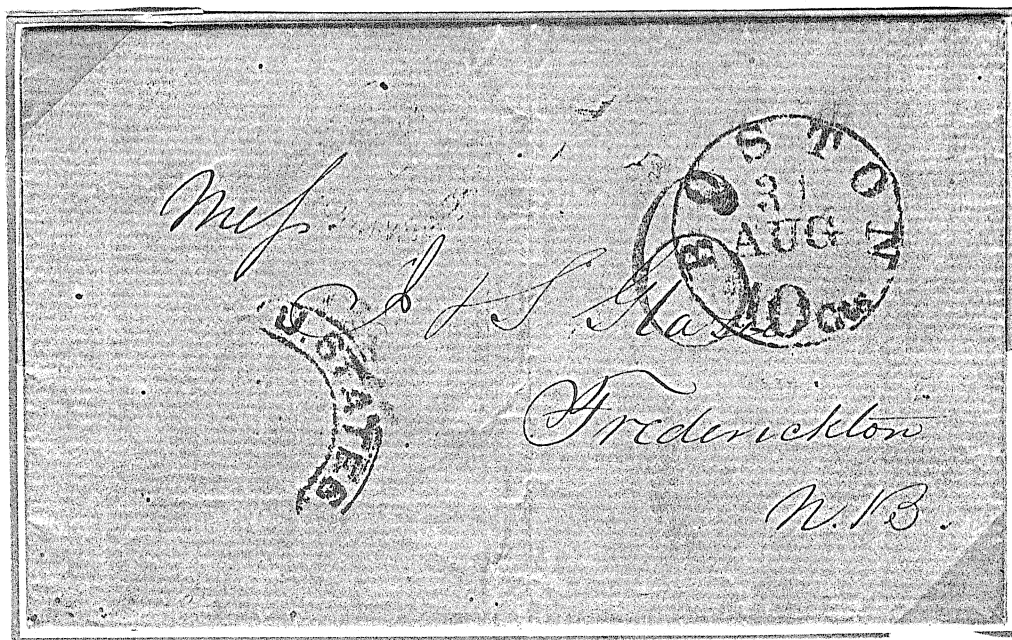 BOSTON
31
AUG
10 cts
Mess
J & S Glasier
U. STATES
Frederickton
N. B.